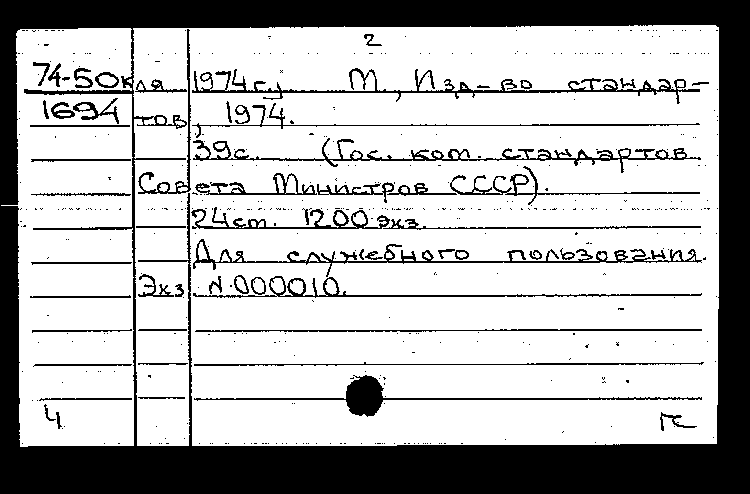 2
74-50к ля 1974 г.) М., Изд-во стандар-
1694 тов, 1974.
39с. (Гос. ком. стандартов
Совета Министров СССР).
24 ст. 1200 экз.
Для служебного пользования.
Экз. N 000010.
4 ГС